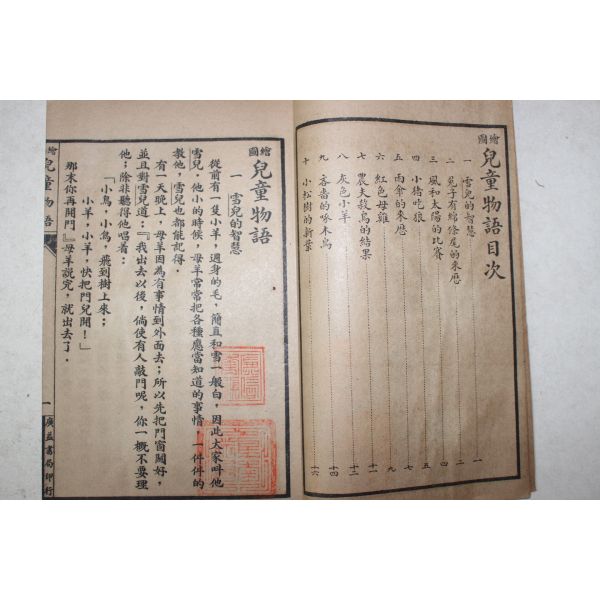 繪圖 兒童物語目次
一 雪兒的智慧 一
二 兔子有綿條尾的來歷 二
三 風和太陽的比賽 四
四 小猪吃狼 五
五 雨傘的來歷 七
六 紅色母雞 九
七 農夫救鳥的結果 十一
八 灰色小羊 十二
九 吝嗇的啄木鳥 十四
十 小松樹的新葉 十六
繪圖 兒童物語
一 雪兒的智慧
從前有一隻小羊，週身的毛，簡直和雪一般白，因此大家呌他
雪兒．他小的時候，母羊常常把各種應當知道的事情，一件件的
教他，雪兒也都能記得．
有一天晚上，母羊因為有事情到外面去；所以先把門窗關好，
並且對雪兒道：『我出去以後，倘使有人敲門呢，你一概不要理
他；除非聽得他唱着：
「小鳥，小鳥，飛到樹上來；
小羊，小羊，快把門兒開！」
那末你再開門』母羊說完，就出去了．
繪圖 兒童物語
一
廣益書局印行